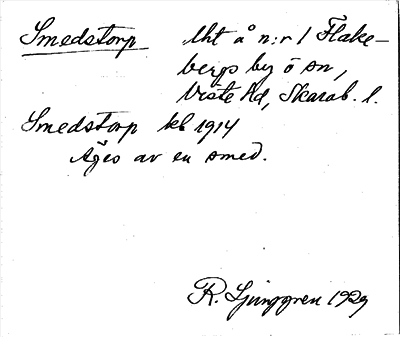 Smedstorp lht å n:r 1 Flake-
bergs by o sn,
Viste hd, Skarab. l.
Smedstorp kb 1914
Äges av en smed.
R. Ljunggren 1929